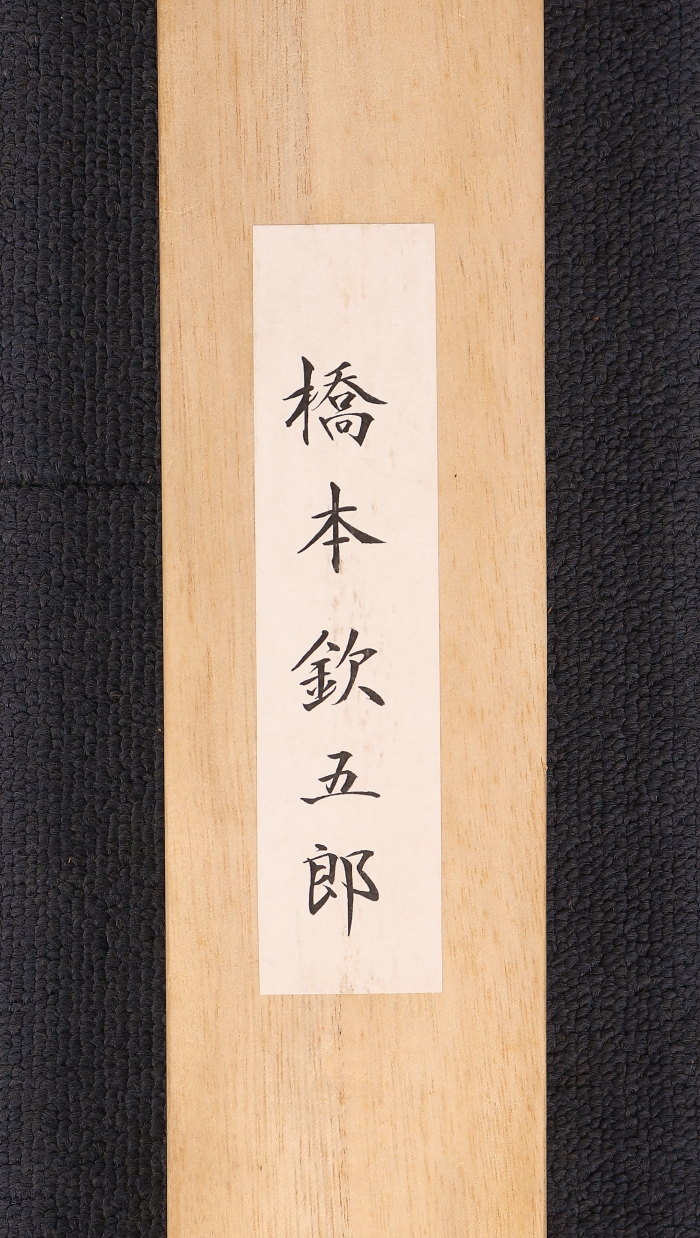 橋本欽五郎